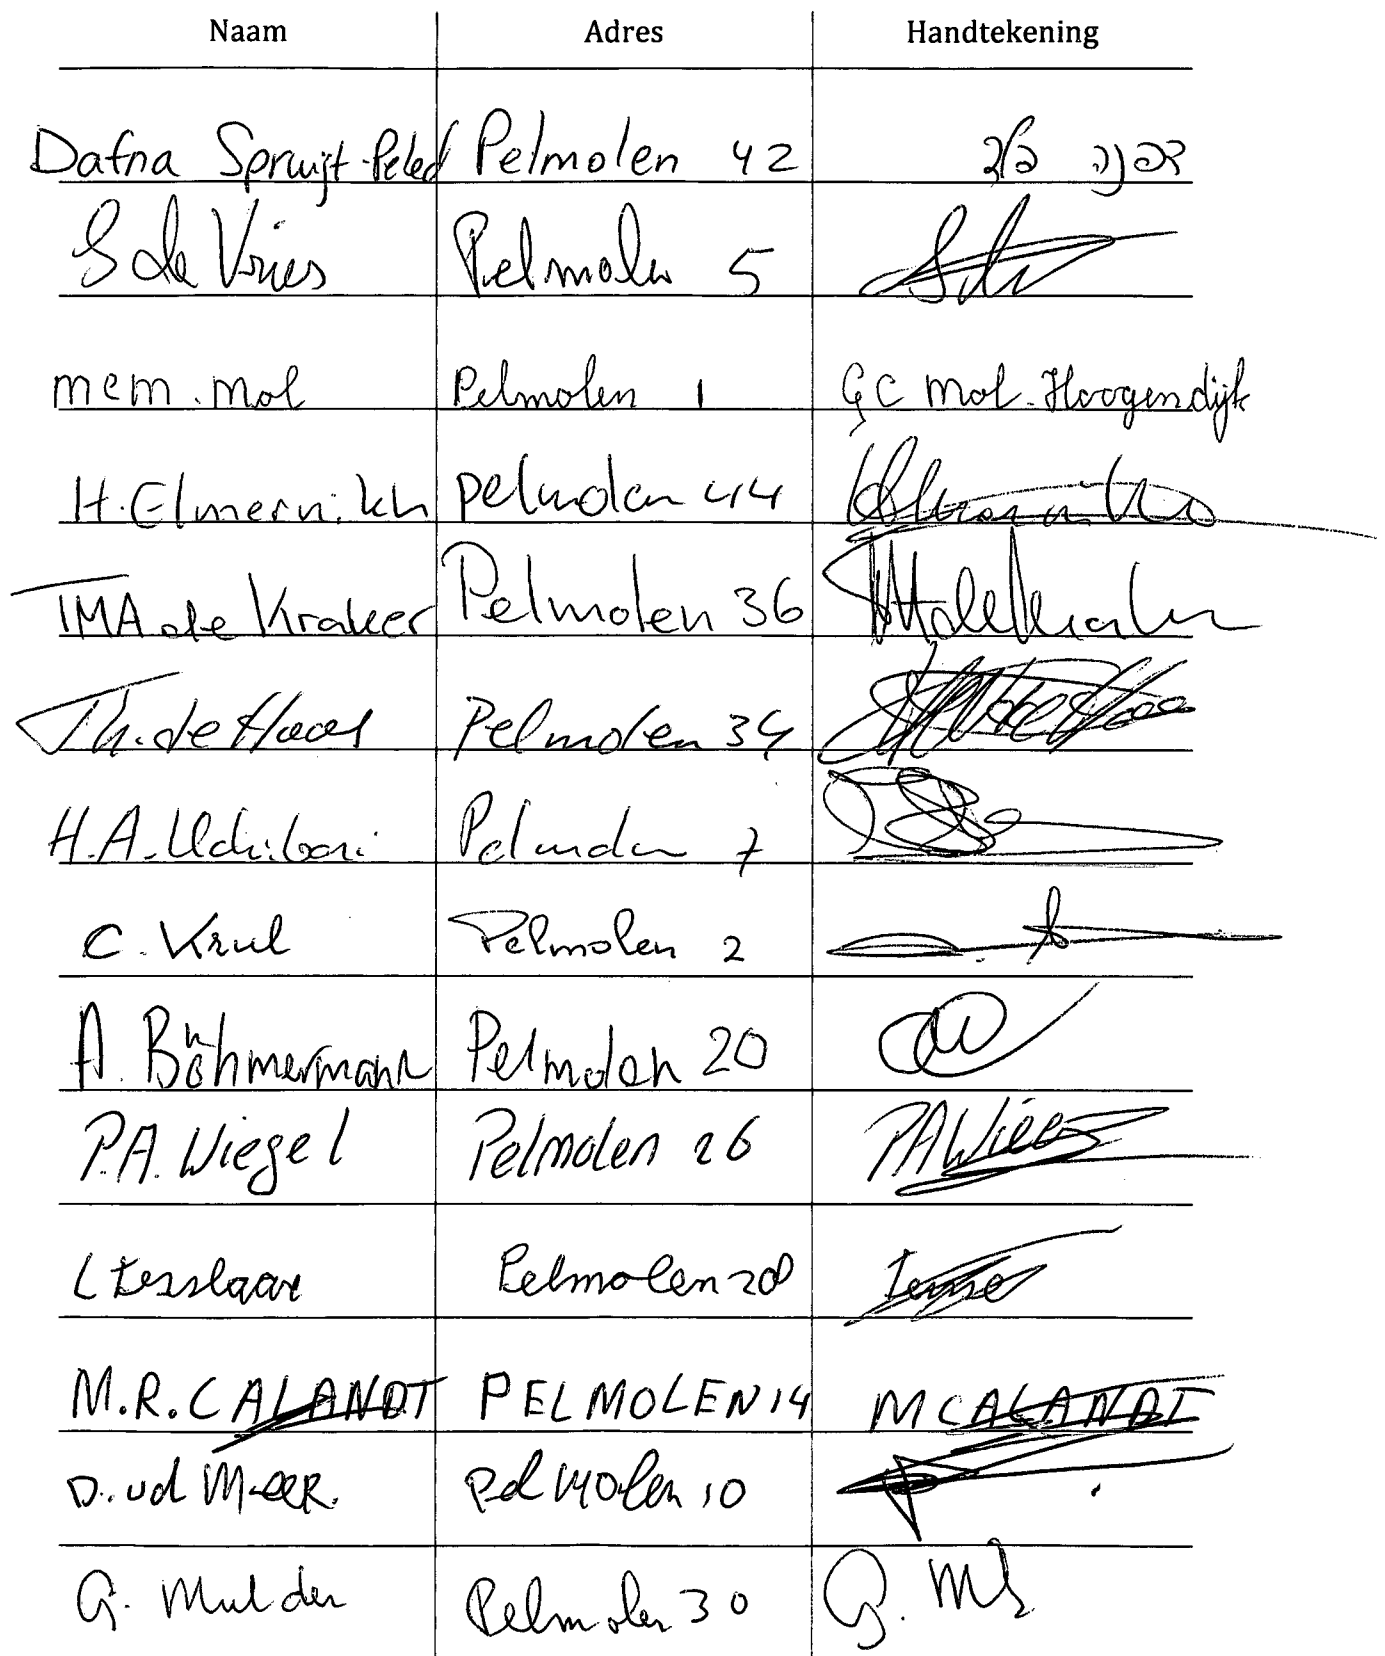 Naam Adres Handtekening
Dafna Spruijt-Peled Pelmolen 42 דפנה פלד
S de Vries Pelmolen 5
mcm. mol Pelmolen 1 G C Mol-Hoogendijk
H. Elmernikh pelmolen 44
TMA de Kraker Pelmolen 36
Th. de Haas Pelmolen 34
H.A. Pelmolen 7
C. Krul Pelmolen 2
A. Böhmermann Pelmolen 20
P.A. Wiegel Pelmolen 26 PAWieg
L Tesselaar Pelmolen 28
M.R. CALANDT PELMOLEN 14 MCALANDT
D. vd Meer. Pelmolen 10
G. Mulder Pelmolen 30 G. M